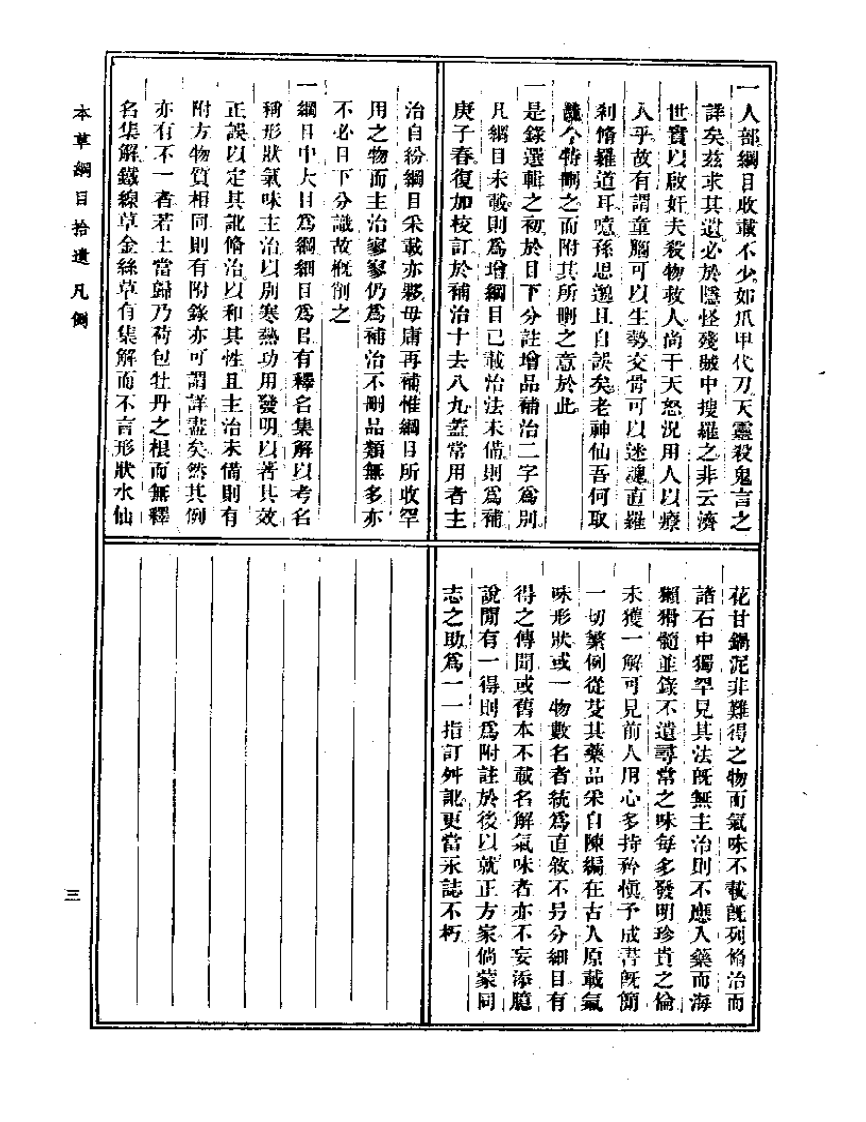 一人部綱目收載不少如爪甲代刀天靈殺鬼言之
詳矣茲求其遺必於隱怪殘賊中搜羅之非云濟
世實以啟奸夫殺物救人尚干天怒況用人以療
人乎故有謂童腦可以生勢交骨可以迷魂直羅
剎脩羅道耳噫孫思邈且自誤矣老神仙吾何取
焉今特刪之而附其所刪之意於此
一是錄選輯之初於目下分註增品補治二字爲別
凡綱目未載則爲增綱目已載治法未備則爲補
庚子春復加校訂於補治十去八九蓋常用者主
治自紛綱目采載亦夥毋庸再補惟綱目所收罕
用之物而主治寥寥仍爲補治不刪品類無多亦
不必目下分識故槪削之
一綱目中大目爲綱細目爲目有釋名集解以考名
稱形狀氣味主治以別寒熱功用發明以著其效
正誤以定其訛脩治以和其性且主治未備則有
附方物質相同則有附錄亦可謂詳盡矣然其例
亦有不一者若土當歸乃荷包牡丹之根而無釋
名集解鐵線草金絲草有集解而不言形狀水仙
本草綱目拾遺 凡例
三
花甘鍋泥非難得之物而氣味不載旣列脩治而
諸石中獨罕見其法旣無主治則不應入藥而海
獺猾髓並錄不遺尋常之味每多發明珍貴之倫
未獲一解可見前人用心多持矜愼予成書旣簡
一切繁例從芟其藥品采自陳編在古人原載氣
味形狀或一物數名者統爲直敘不另分細目有
得之傳聞或舊本不載名解氣味者亦不妄添臆
說閒有一得則爲附註於後以就正方家倘蒙同
志之助爲一一指訂舛訛更當永誌不朽